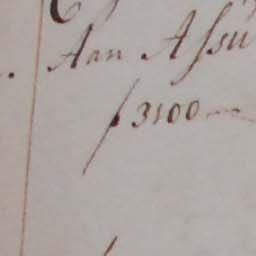 Aan Assu
ƒ 3100